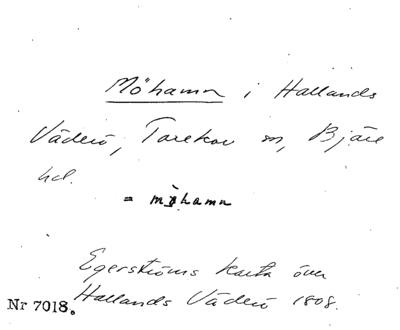 Möhamn i Hallands
Väderö, Torekov sn, Bjäre
hd.
= möhamn
Egerströms karta över
Hallands Väderö 1808.
Nr 7018.